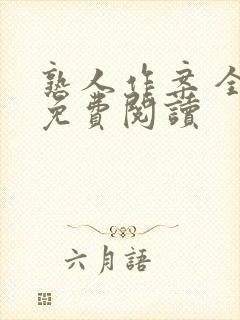 熟人作案全
免費閱讀
六月語